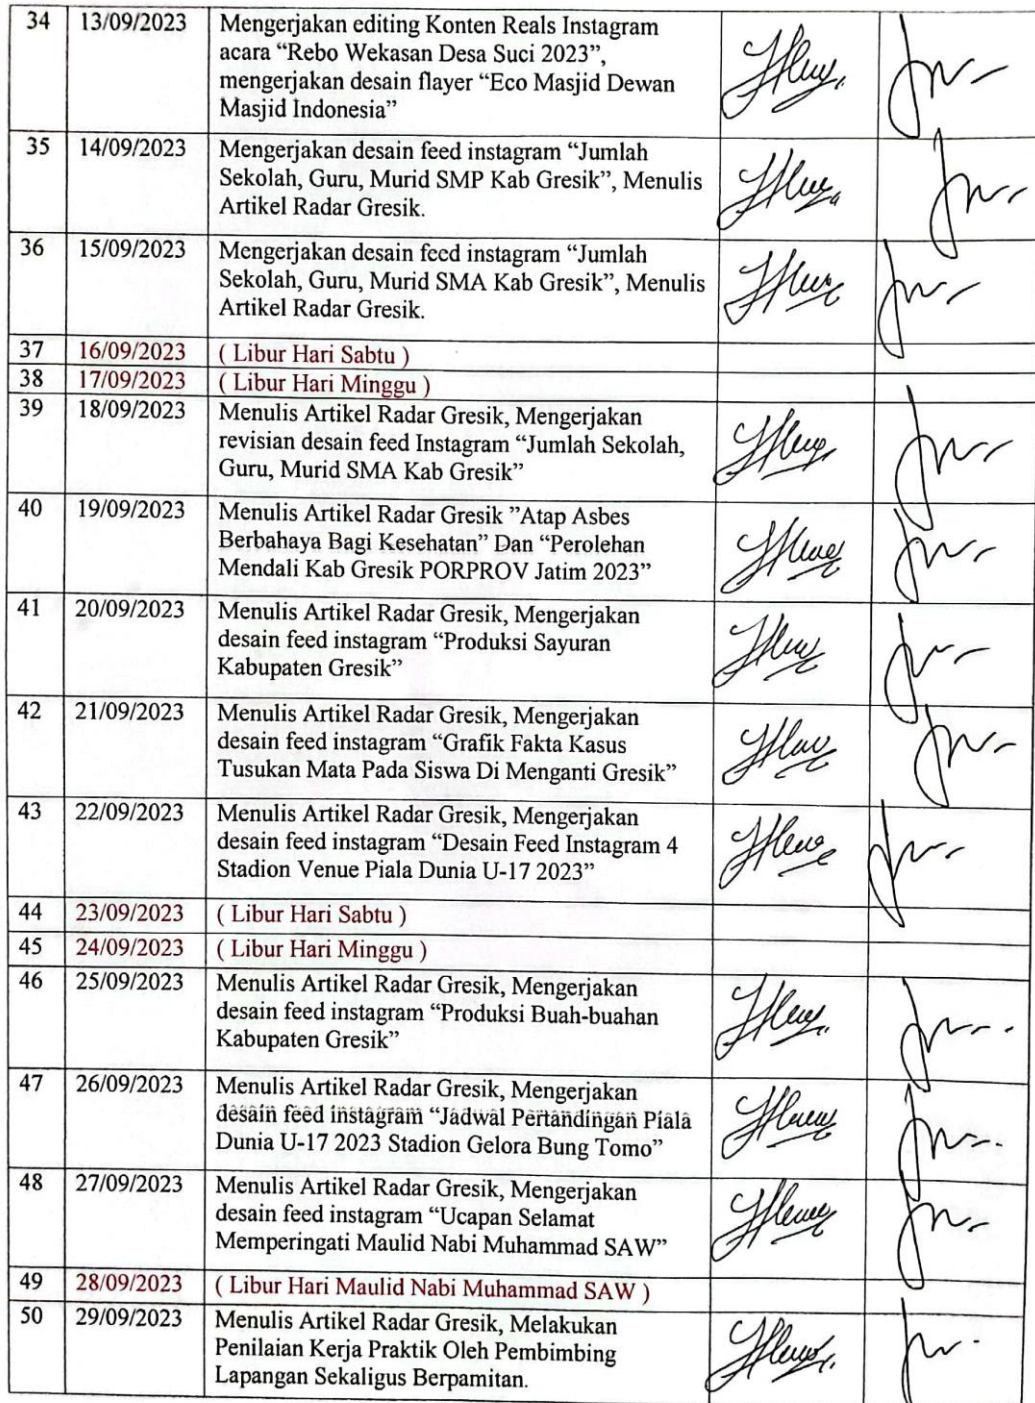 34 13/09/2023 Mengerjakan editing Konten Reals Instagram
acara “Rebo Wekasan Desa Suci 2023”,
mengerjakan desain flayer “Eco Masjid Dewan
Masjid Indonesia”
35 14/09/2023 Mengerjakan desain feed instagram “Jumlah
Sekolah, Guru, Murid SMP Kab Gresik”, Menulis
Artikel Radar Gresik.
36 15/09/2023 Mengerjakan desain feed instagram “Jumlah
Sekolah, Guru, Murid SMA Kab Gresik”, Menulis
Artikel Radar Gresik.
37 16/09/2023 ( Libur Hari Sabtu )
38 17/09/2023 ( Libur Hari Minggu )
39 18/09/2023 Menulis Artikel Radar Gresik, Mengerjakan
revisian desain feed Instagram “Jumlah Sekolah,
Guru, Murid SMA Kab Gresik”
40 19/09/2023 Menulis Artikel Radar Gresik ”Atap Asbes
Berbahaya Bagi Kesehatan” Dan “Perolehan
Mendali Kab Gresik PORPROV Jatim 2023”
41 20/09/2023 Menulis Artikel Radar Gresik, Mengerjakan
desain feed instagram “Produksi Sayuran
Kabupaten Gresik”
42 21/09/2023 Menulis Artikel Radar Gresik, Mengerjakan
desain feed instagram “Grafik Fakta Kasus
Tusukan Mata Pada Siswa Di Menganti Gresik”
43 22/09/2023 Menulis Artikel Radar Gresik, Mengerjakan
desain feed instagram “Desain Feed Instagram 4
Stadion Venue Piala Dunia U-17 2023”
44 23/09/2023 ( Libur Hari Sabtu )
45 24/09/2023 ( Libur Hari Minggu )
46 25/09/2023 Menulis Artikel Radar Gresik, Mengerjakan
desain feed instagram “Produksi Buah-buahan
Kabupaten Gresik”
47 26/09/2023 Menulis Artikel Radar Gresik, Mengerjakan
desain feed instagram “Jadwal Pertandingan Piala
Dunia U-17 2023 Stadion Gelora Bung Tomo”
48 27/09/2023 Menulis Artikel Radar Gresik, Mengerjakan
desain feed instagram “Ucapan Selamat
Memperingati Maulid Nabi Muhammad SAW”
49 28/09/2023 ( Libur Hari Maulid Nabi Muhammad SAW )
50 29/09/2023 Menulis Artikel Radar Gresik, Melakukan
Penilaian Kerja Praktik Oleh Pembimbing
Lapangan Sekaligus Berpamitan.